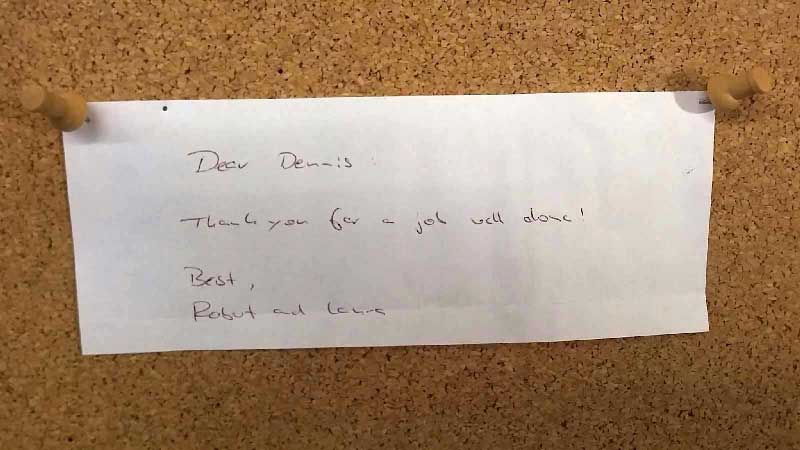 Dear Dennis
Thank you for a job well done!
Best,
Robert and Laura